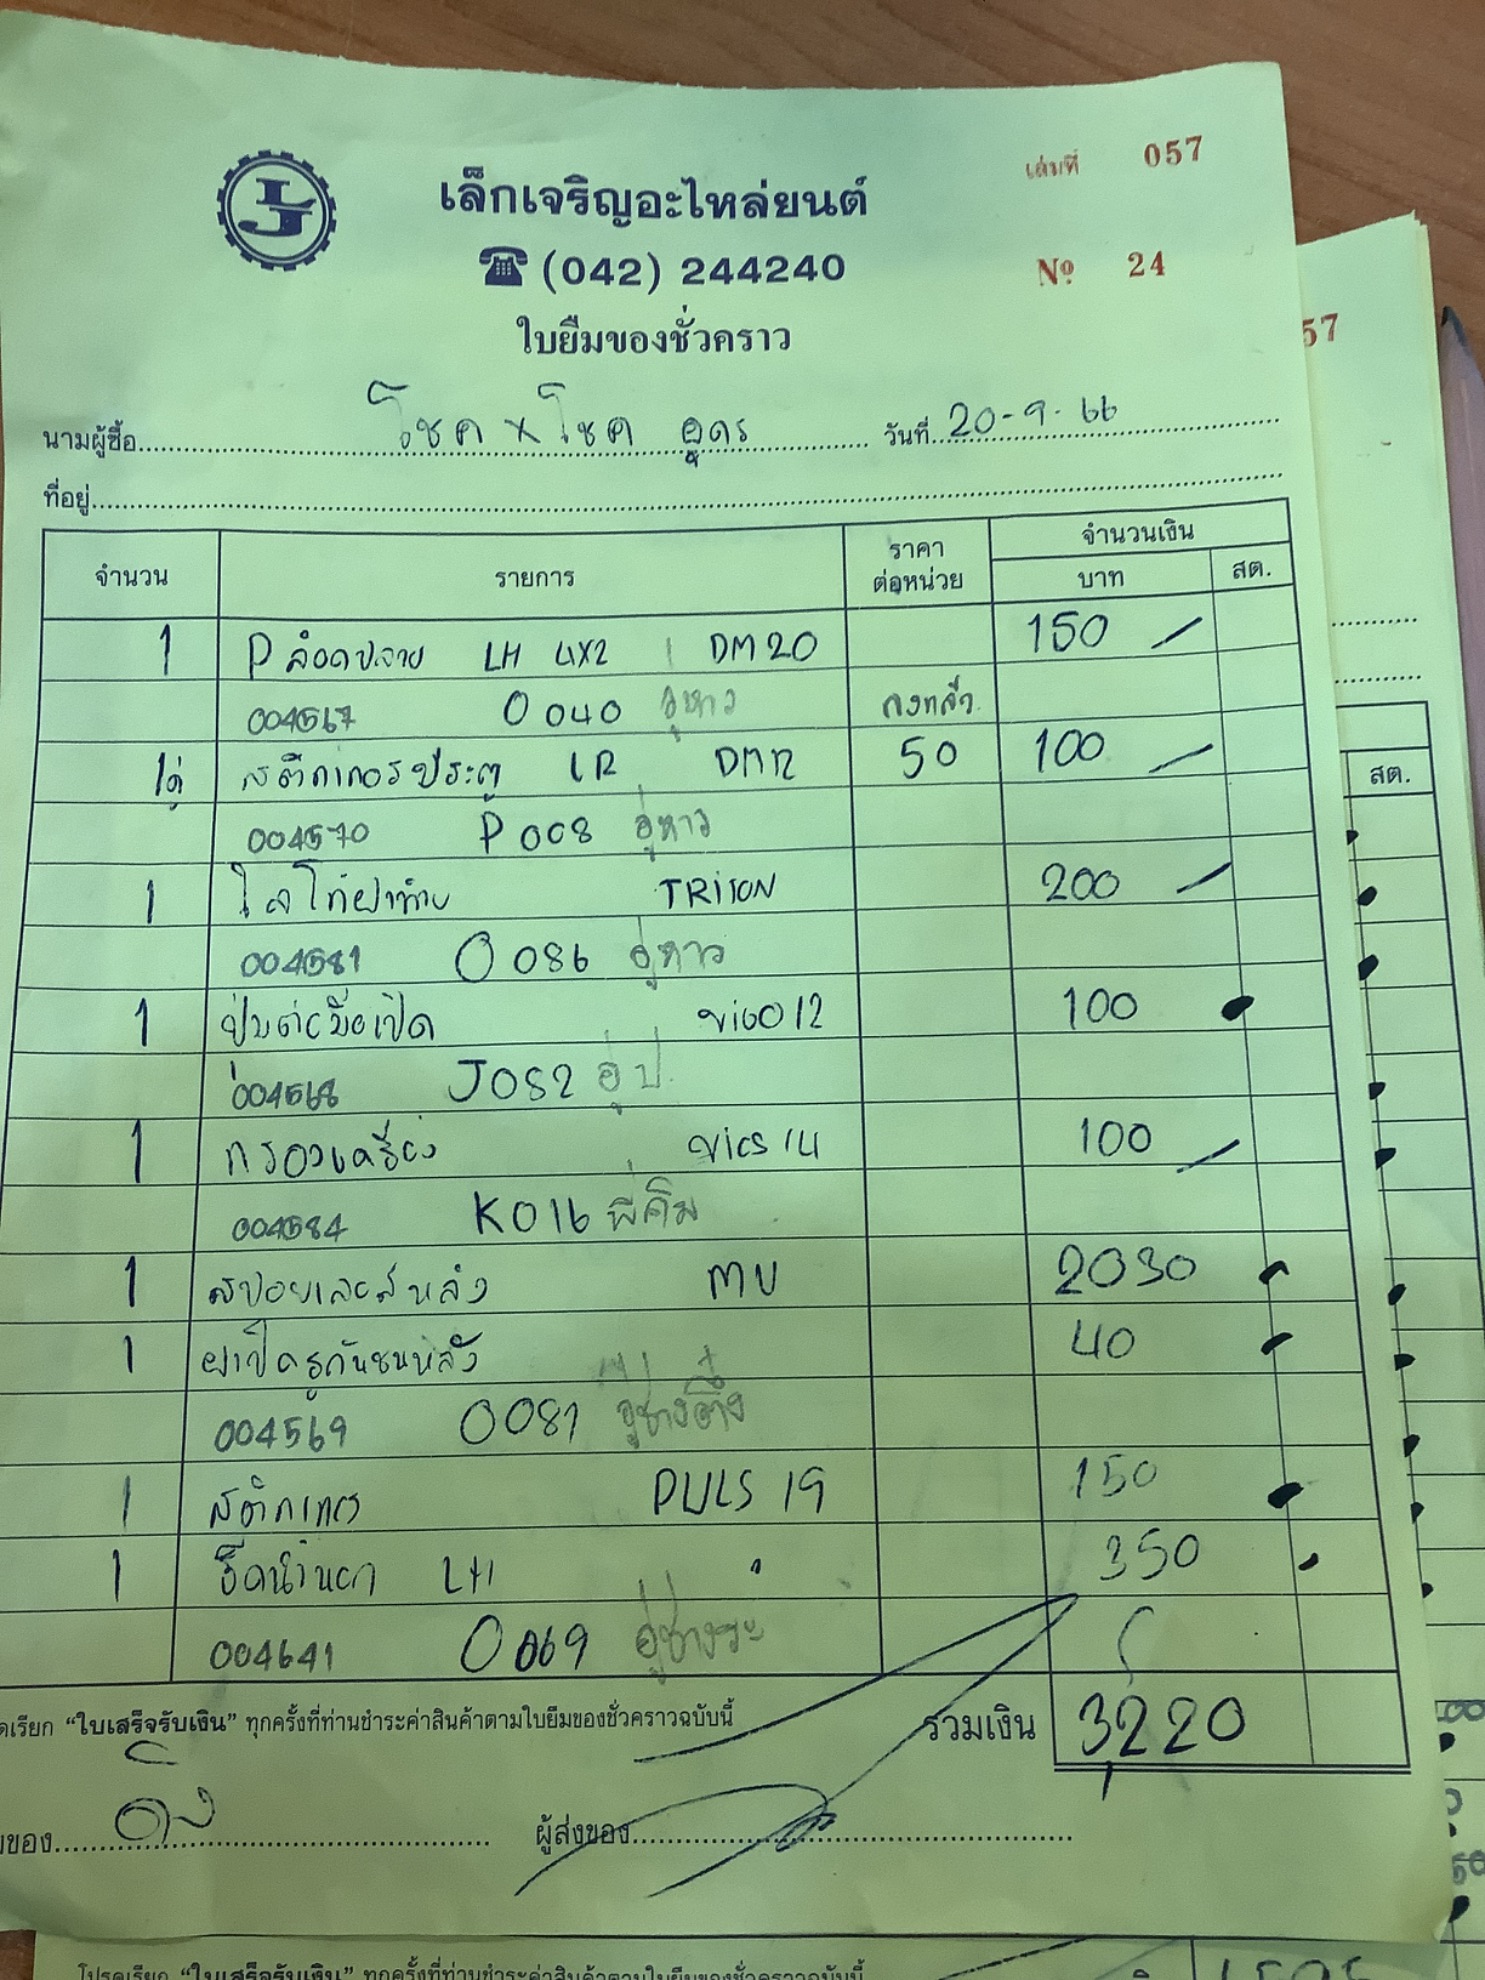 LJ
เล็กเจริญอะไหล่ยนต์
เล่มที่ 057
☎ (042) 244240
Nº 24
ใบยืมของชั่วคราว
57
นามผู้ซื้อ โชค x โชค อุดร วันที่ 20-9-66
ที่อยู่
จำนวน รายการ ราคาต่อหน่วย จำนวนเงิน บาท สต.
1 P LH 4x2 DM20 150
004567 0040 อู่หาว ลงแล้ว
1คู่ สติกเกอรประตู LR DM12 50 100
สต.
004570 P008 อู่หาว
1 TRITON 200
004581 0086 อู่หาว
1 vigo12 100
004568 J082 อู่ ป.
1 กรองเครื่อง 100
004584 K016 พี่คิม
1 สปอยเลอร์หลัง MU 2030
1 ฝาปิดรูกันชนหลัง 40
004569 0081 อู่ช่าง
1 สติกเกอร PULS 19 150
1 LH 350
004641 0069 อู่ช่าง
ดเรียก “ใบเสร็จรับเงิน” ทุกครั้งที่ท่านชำระค่าสินค้าตามใบยืมของชั่วคราวฉบับนี้ รวมเงิน 3,220
ของ ผู้ส่งของ
โปรดเรียก “ใบเสร็จรับเงิน” ทุกครั้งที่ท่านชำระค่าสินค้าตามใบยืมของชั่วคราวฉบับนี้